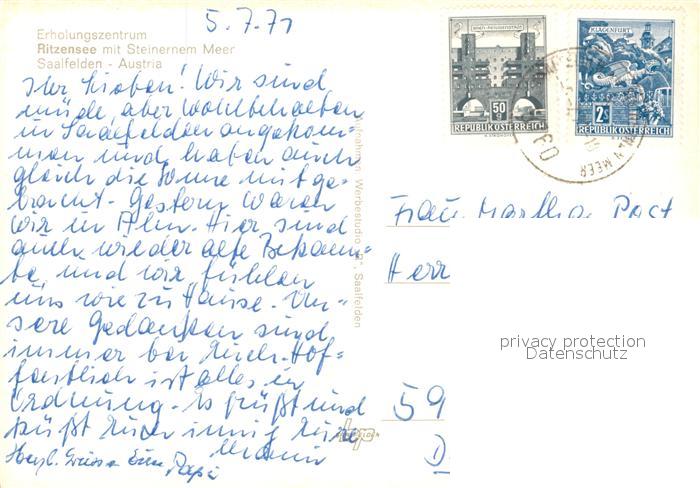 5.7.71
Erholungszentrum
Ritzensee mit Steinernem Meer
Saalfelden - Austria
Ihr Lieben! Wir sind
müde, aber wohlbehalten
in Saalfelden angekom-
men und haben auch
gleich die Sonne mitge-
bracht. Gestern waren
wir in Alm. Hier sind
auch wieder alte Bekann-
te und wir fühlen
uns wie zu Hause. Un-
sere Gedanken sind
immer bei Euch. Hof-
fentlich ist alles in
Ordnung. Es grüßt und
küßt Euch innig Eure
Mami
Herzl. Grüsse Euer Papi
Aufnahmen Werbestudio "R", Saalfelden
WIEN-HEILIGENSTADT
50 g
REPUBLIK ÖSTERREICH
KLAGENFURT
2 S
REPUBLIK ÖSTERREICH
MEER
Frau Martha
Herr
59
D
privacy protection
Datenschutz